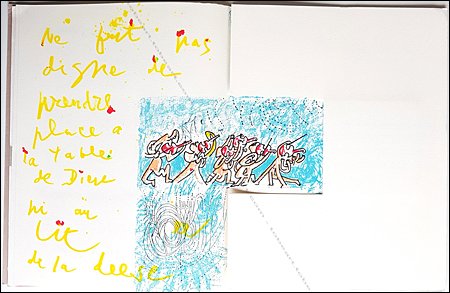 Ne fut pas
digne de
prendre
place a
la Table
de Dieu
ni au
Lit
de la deesse